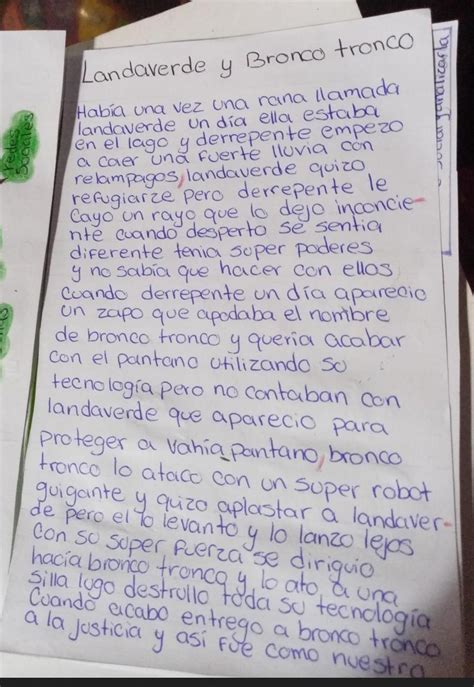 Landaverde y Bronco tronco
Había una vez una rana llamada
landaverde un día ella estaba
en el lago y derrepente empezo
a caer una fuerte lluvia con
relampagos, landaverde quizo
refugiarze pero derrepente le
Cayo un rayo que lo dejo inconcie-
nte cuando desperto se sentia
diferente tenia super poderes
y no sabía que hacer con ellos
cuando derrepente un día aparecio
un zapo que apodaba el nombre
de bronco tronco y quería acabar
con el pantano utilizando su
tecnología pero no contaban con
landaverde que aparecio para
proteger a vahía pantano, bronco
tronco lo ataco con un super robot
guigante y quizo aplastar a landaver-
de pero el lo levanto y lo lanzo lejos
con su super fuerza se diriguio
hacía bronco tronco y lo ato a una
silla lugo destrullo toda su tecnología
Cuando acabo entrego a bronco tronco
a la justicia y así fue como nuestra
redes
sociales